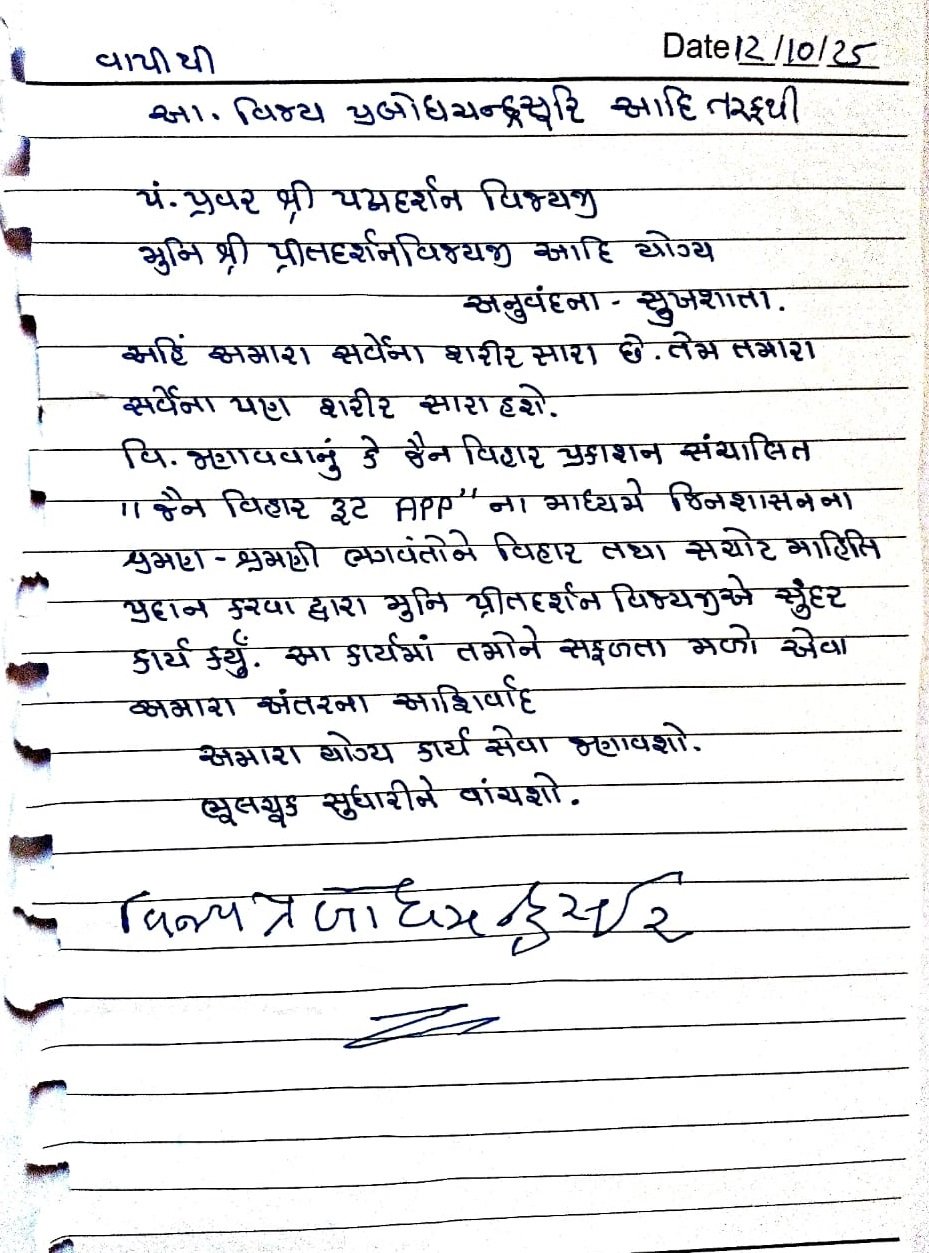 વાપીથી
Date 12/10/25
આ. વિજય પ્રબોધચન્દ્રસૂરિ આદિ તરફથી
પં. પ્રવર શ્રી પદ્મદર્શન વિજયજી
મુનિ શ્રી પ્રીતદર્શનવિજયજી આદિ યોગ્ય
અનુવંદના - સુખશાતા.
અહિં અમારા સર્વેના શરીર સારા છે. તેમ તમારા
સર્વેના પણ શરીર સારા હશે.
વિ. જણાવવાનું કે જૈન વિહાર પ્રકાશન સંચાલિત
"જૈન વિહાર રૂટ APP" ના માધ્યમે જિનશાસનના
શ્રમણ - શ્રમણી ભગવંતોને વિહાર તથા સચોટ માહિતિ
પ્રદાન કરવા દ્વારા મુનિ પ્રીતદર્શન વિજયજીએ સુંદર
કાર્ય કર્યું. આ કાર્યમાં તમોને સફળતા મળો એવા
અમારા અંતરના આશિર્વાદ
અમારા યોગ્ય કાર્ય સેવા જણાવશો.
ભૂલચૂક સુધારીને વાંચશો.
વિજય પ્રબોધચન્દ્રસૂરિ